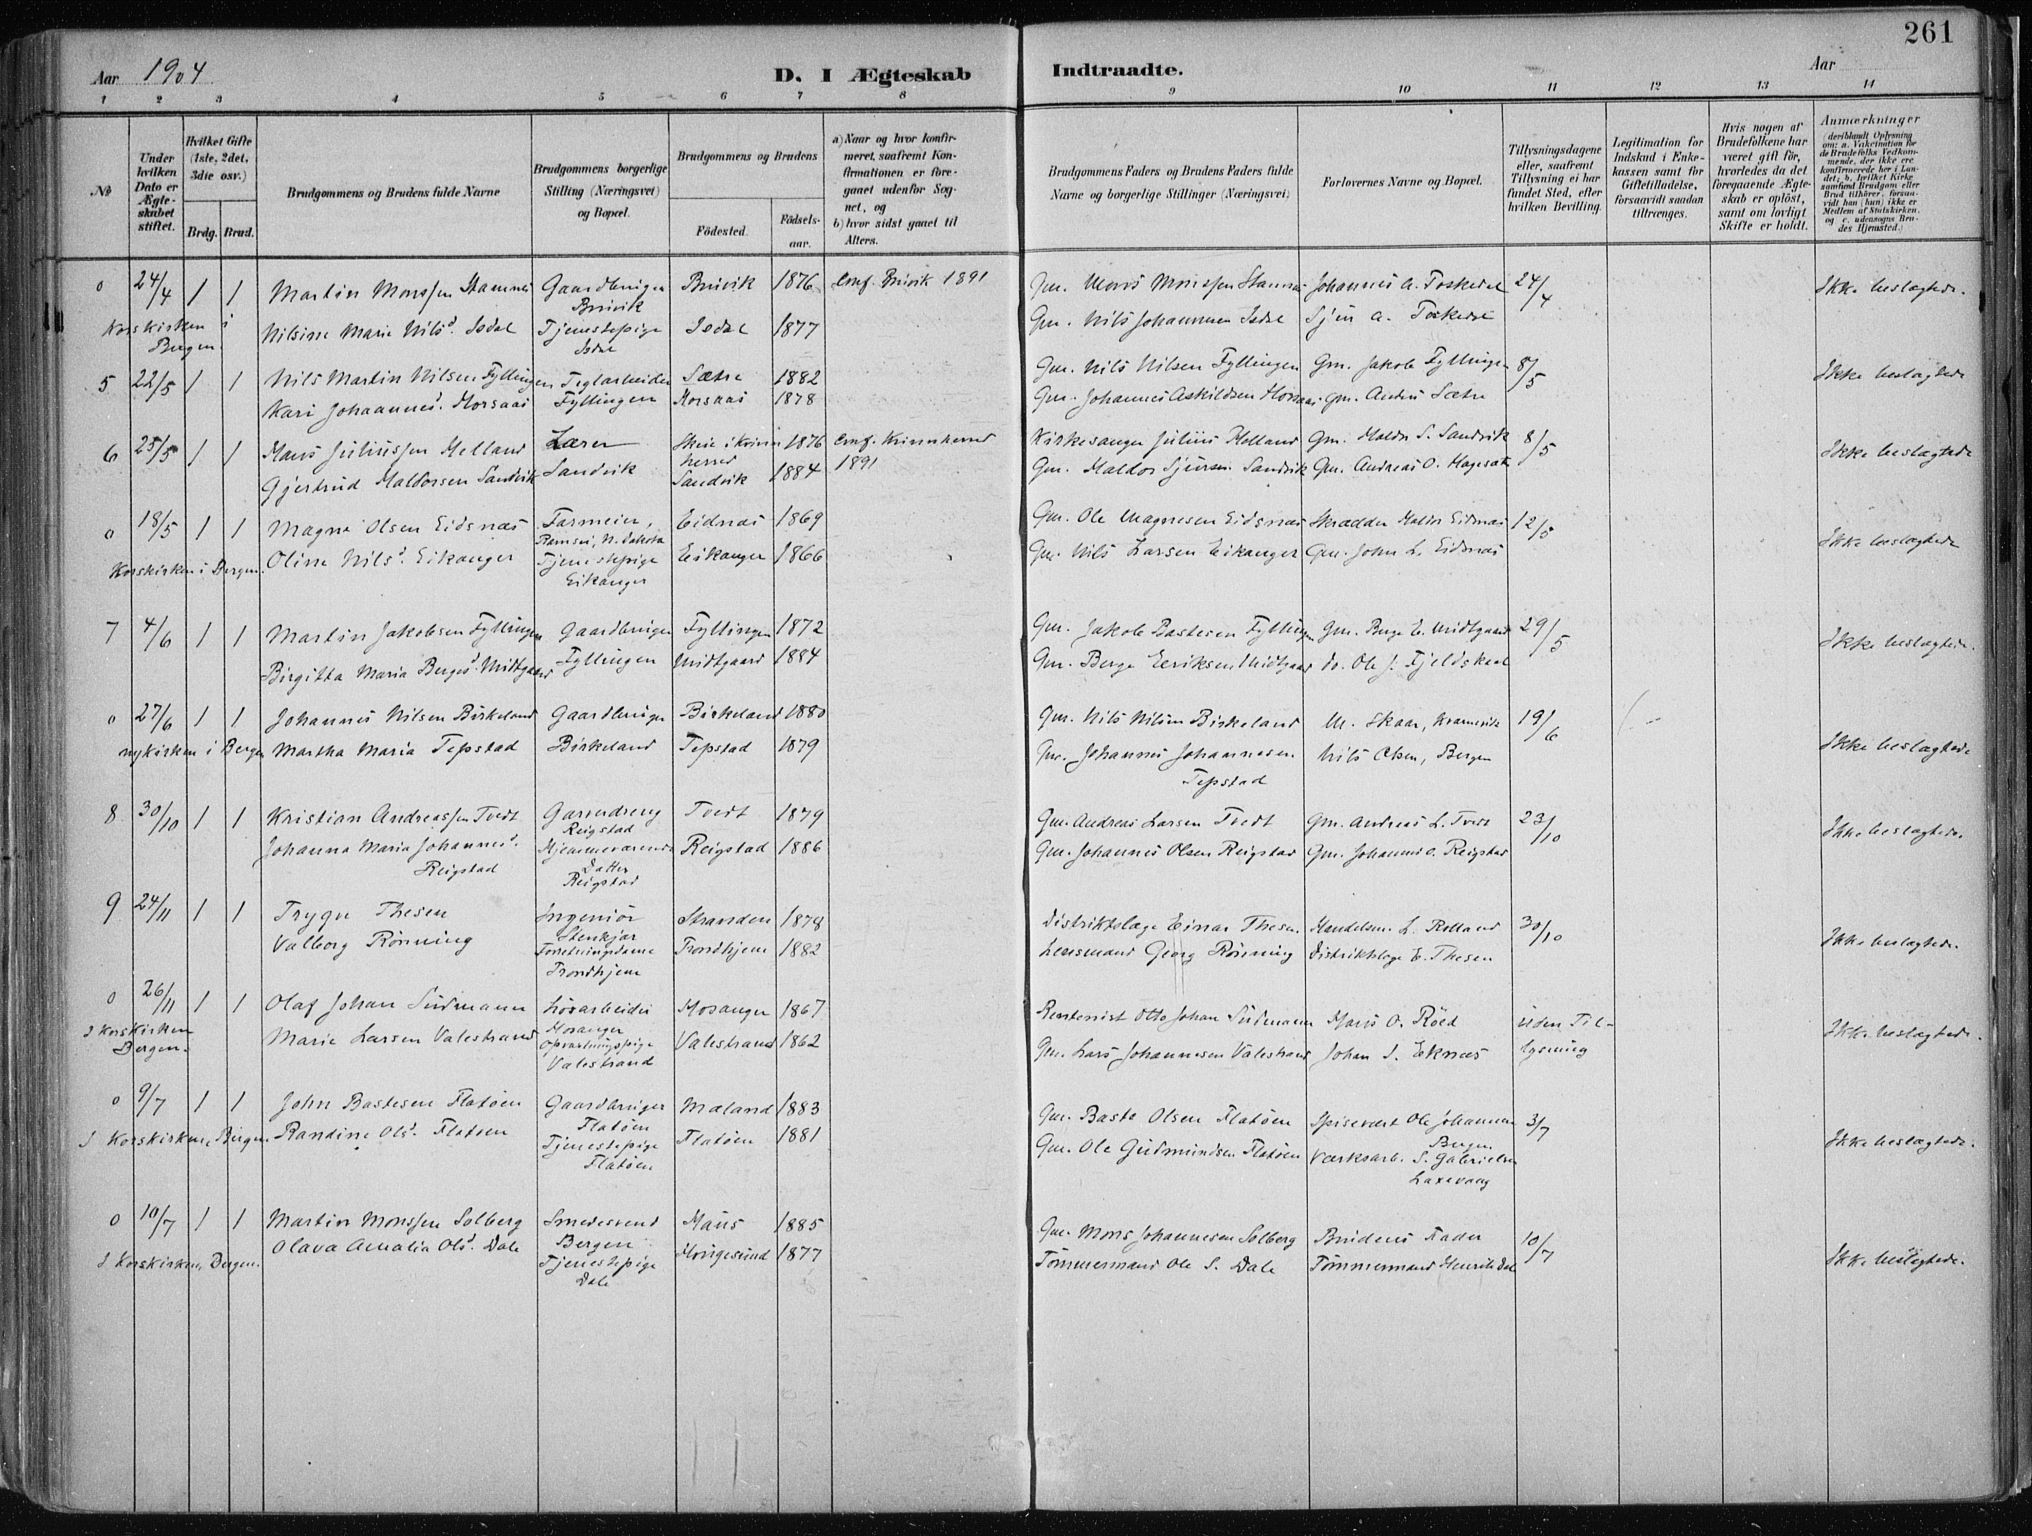 261
Aar 1904
D. I Ægteskab
Indtraadte.
Aar
1 2 3 4 5 6 7 8
9 10 11 12 13 14
№
Under hvilken Dato er Ægteskabet stiftet.
Hvilket Gifte (1ste, 2det, 3die osv.)
Brdg. Brud.
Brudgommens og Brudens fulde Navne
Brudgommens borgerlige Stilling (Næringsvei) og Bopæl.
Brudgommens og Brudens
Fødested.
Fødsels-aar.
a) Naar og hvor konfirmeret, saafremt Konfirmationen er foregaaet udenfor Sognet, og
b) hvor sidst gaaet til Alters.
Brudgommens Faders og Brudens Faders fulde Navne og borgerlige Stillinger (Næringsvei)
Forlovernes Navne og Bopæl.
Tillysningsdagene eller, saafremt Tillysning ei har fundet Sted, efter hvilken Bevilling.
Legitimation for Indskud i Enkekassen samt for Giftetilladelse, forsaavidt saadan tiltrænges.
Hvis nogen af Brudefolkene har været gift før, hvorledes da det foregaaende Ægteskab er opløst, samt om lovligt Skifte er holdt.
Anmærkninger
(deriblandt Oplysning om: a. Vakcination for de Brudefolks Vedkommende, der ikke ere konfirmerede her i Landet; b. hvilket Kirkesamfund Brudgom eller Brud tilhører, forsaavidt han (hun) ikke er Medlem af Statskirken, og c. udensogns Brudes Hjemsted.)
0 24/4 1 1 Martin Monssen Stamnes Gaardbruger Bruvik Bruvik 1876 Conf. Bruvik 1891 Gm. Mons Monssen Stamnes Johannes A. Toskedal 24/4 Ikke beslægtede.
Korskirken i Bergen. Nilsine Marie Nilsd. Isdal Tjenestepige Isdal Isdal 1877 Gm. Nils Johannesen Isdal Sjur A. Toskedal
5 22/5 1 1 Nils Martin Nilsen Fyllingen Teglarbeider Sætre 1882 Gm. Nils Nilsen Fyllingen Gm. Jakob Fyllingen 8/5 Ikke beslægtede
Kari Johannesd. Horsaas Fyllingen Horsaas 1878 Gm. Johannes Askildsen Horsaas Gm. Anders Sætre
6 25/5 1 1 Hans Juliussen Helland Lærer Skeie i Kvinnherred 1876 Conf. Kvinnherred 1891 Kirkesanger Julius Helland Gm. Haldor S. Sandvik 8/5 Ikke beslægtede
Gjertrud Haldorsen Sandvik Sandvik Sandvik 1884 Gm. Haldor Sjursen Sandvik Gm. Andreas O. Hagesæt
0 18/5 1 1 Magne Olsen Eidsnæs Farmeier, Ramsei, N. Dakota Eidnæs 1869 Gm. Ole Magnesen Eidsnæs Skrædder Haldor Eidnæs 12/5 Ikke beslægtede
Korskirken i Bergen. Oline Nilsd. Eikanger Tjenestepige Eikanger Eikanger 1866 Gm. Nils Larsen Eikanger Gm. John L. Eidsnæs
7 4/6 1 1 Martin Jakobsen Fyllingen Gaardbruger Fyllingen 1872 Gm. Jakob Bastesen Fyllingen Gm. Berge E. Midtgaard 29/5 Ikke beslægtede.
Birgitta Maria Berges d. Midtgaard Fyllingen Midtgaard 1884 Gm. Berge Eeriksen Midtgaard do. Ole J. Fjeldskaal
0 27/6 1 1 Johannes Nilsen Birkeland Gaardbruger Birkeland 1880 Gm. Nils Nilsen Birkeland M. Skaar, 19/6
Nykirken i Bergen Martha Maria Tepstad Birkeland Tepstad 1879 Gm. Johannes Johannesen Tepstad Nils Olsen, Bergen Ikke beslægtede
8 30/10 1 1 Kristian Andreassen Tvedt Gaardreng Reigstad Tvedt 1879 Gm. Andreas Larsen Tvedt Gm. Andreas L. Tvedt 23/10 Ikke beslægtede.
Johanna Maria Johannesd. Reigstad Hjemmeværende Datter Reigstad Reigstad 1886 Gm. Johannes Olsen Reigstad Gm. Johannes O. Reigstad
9 24/11 1 1 Trygve Thesen Ingeniør Stenkjær Stranden 1878 Distriktslæge Einar Thesen Handelsm. L. Rolland 30/10
Valborg Rønning Forretningsdame Trondhjem Trondhjem 1882 Lensmand Georg Rønning Distriktslæge E. Thesen Ikke beslægtede.
0 26/11 1 1 Olaf Johan Sudmann Løsarbeider Hosanger Hosanger 1867 Rentenist Otto Johan Sudmann Hans O. Röed uden Tillysning Ikke beslægtede.
I Korskirken Bergen. Marie Larsen Valestrand Opvartningspige Valestrand Valestrand 1862 Gm. Lars Johannesen Valestrand Johan J. Eknæs
0 9/7 1 1 John Bastesen Flatøen Gaardbruger Flatøen Mæland 1883 Gm. Baste Olsen Flatøen Spisevært Ole Johannesen Bergen 3/7
I Korskirken, Bergen Randine Olsd. Flatøen Tjenestepige Flatøen Flatøen 1881 Gm. Ole Gudmundsen Flatøen Værksarb. S. Gabrielsen Laxevaag Ikke beslægtede.
0 10/7 1 1 Martin Monssen Solberg Smedesvend Bergen Haus 1885 Gm. Mons Johannesen Solberg Brudens Fader 10/7
I Korskirken, Bergen. Olava Amalia Olsd. Dale Tjenestepige Dale Haugesund 1877 Tømmermand Ole S. Dale Tømmermand Henrik Dal Ikke beslægtede.